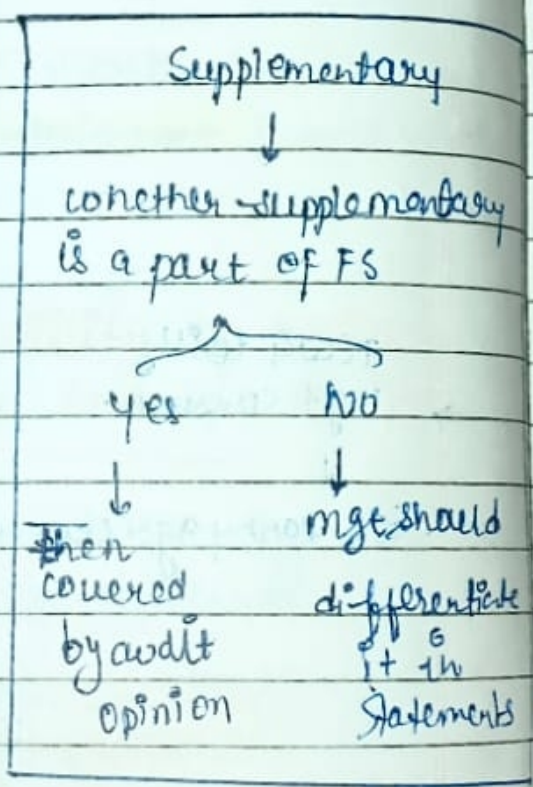 Supplementary
whether supplementary
is a part of FS
Yes
No
then
covered
by audit
opinion
mgt should
differentiate
it in
statements